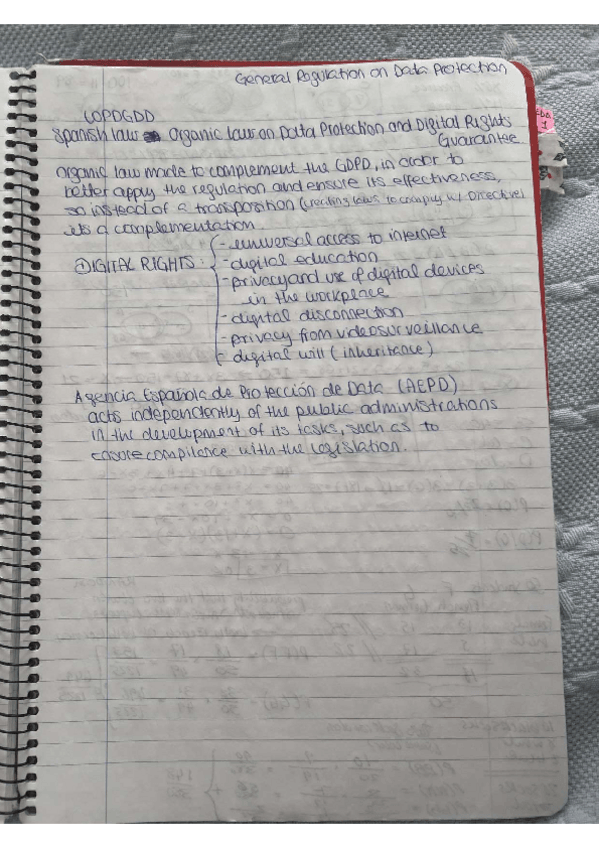 General Regulation on Data Protection
LOPDGDD
Spanish law Organic law on Data Protection and Digital Rights
Guarantee
Organic law made to complement the GDPD, in order to
better apply the regulation and ensure its effectiveness,
so instead of a transposition (creating laws to comply w/ Directive)
its a complementation.
DIGITAL RIGHTS:
- universal access to internet
- digital education
- privacy and use of digital devices
in the workplace
- digital disconnection
- privacy from videosurveillance
- digital will (inheritance)
Agencia Española de Protección de Data (AEPD)
acts independently of the public administrations
in the development of its tasks, such as to
ensure compilance with the legislation.